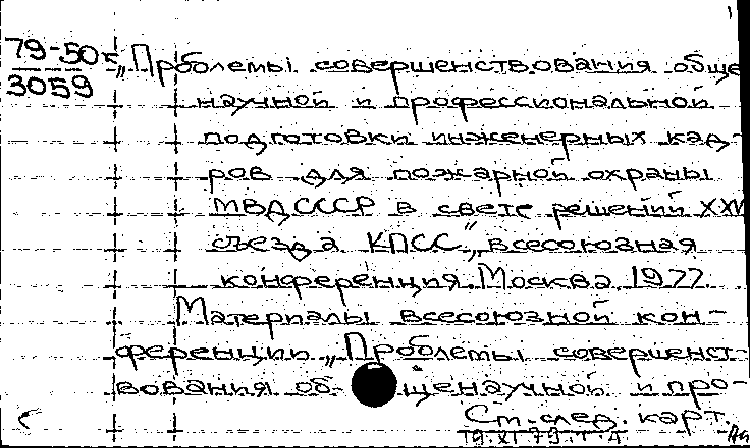 79-50
3059
„Проблемы совершенствования обще
научной и профессиональной
подготовки инженерных кад-
ров для пожарной охраны
МВД СССР в свете решений
съезда КПСС", всесоюзная
конференция. Москва. 1977.
Материалы всесоюзной кон-
ференции „Проблемы совершенст-
вования общенаучной и про-
См. след. карт.